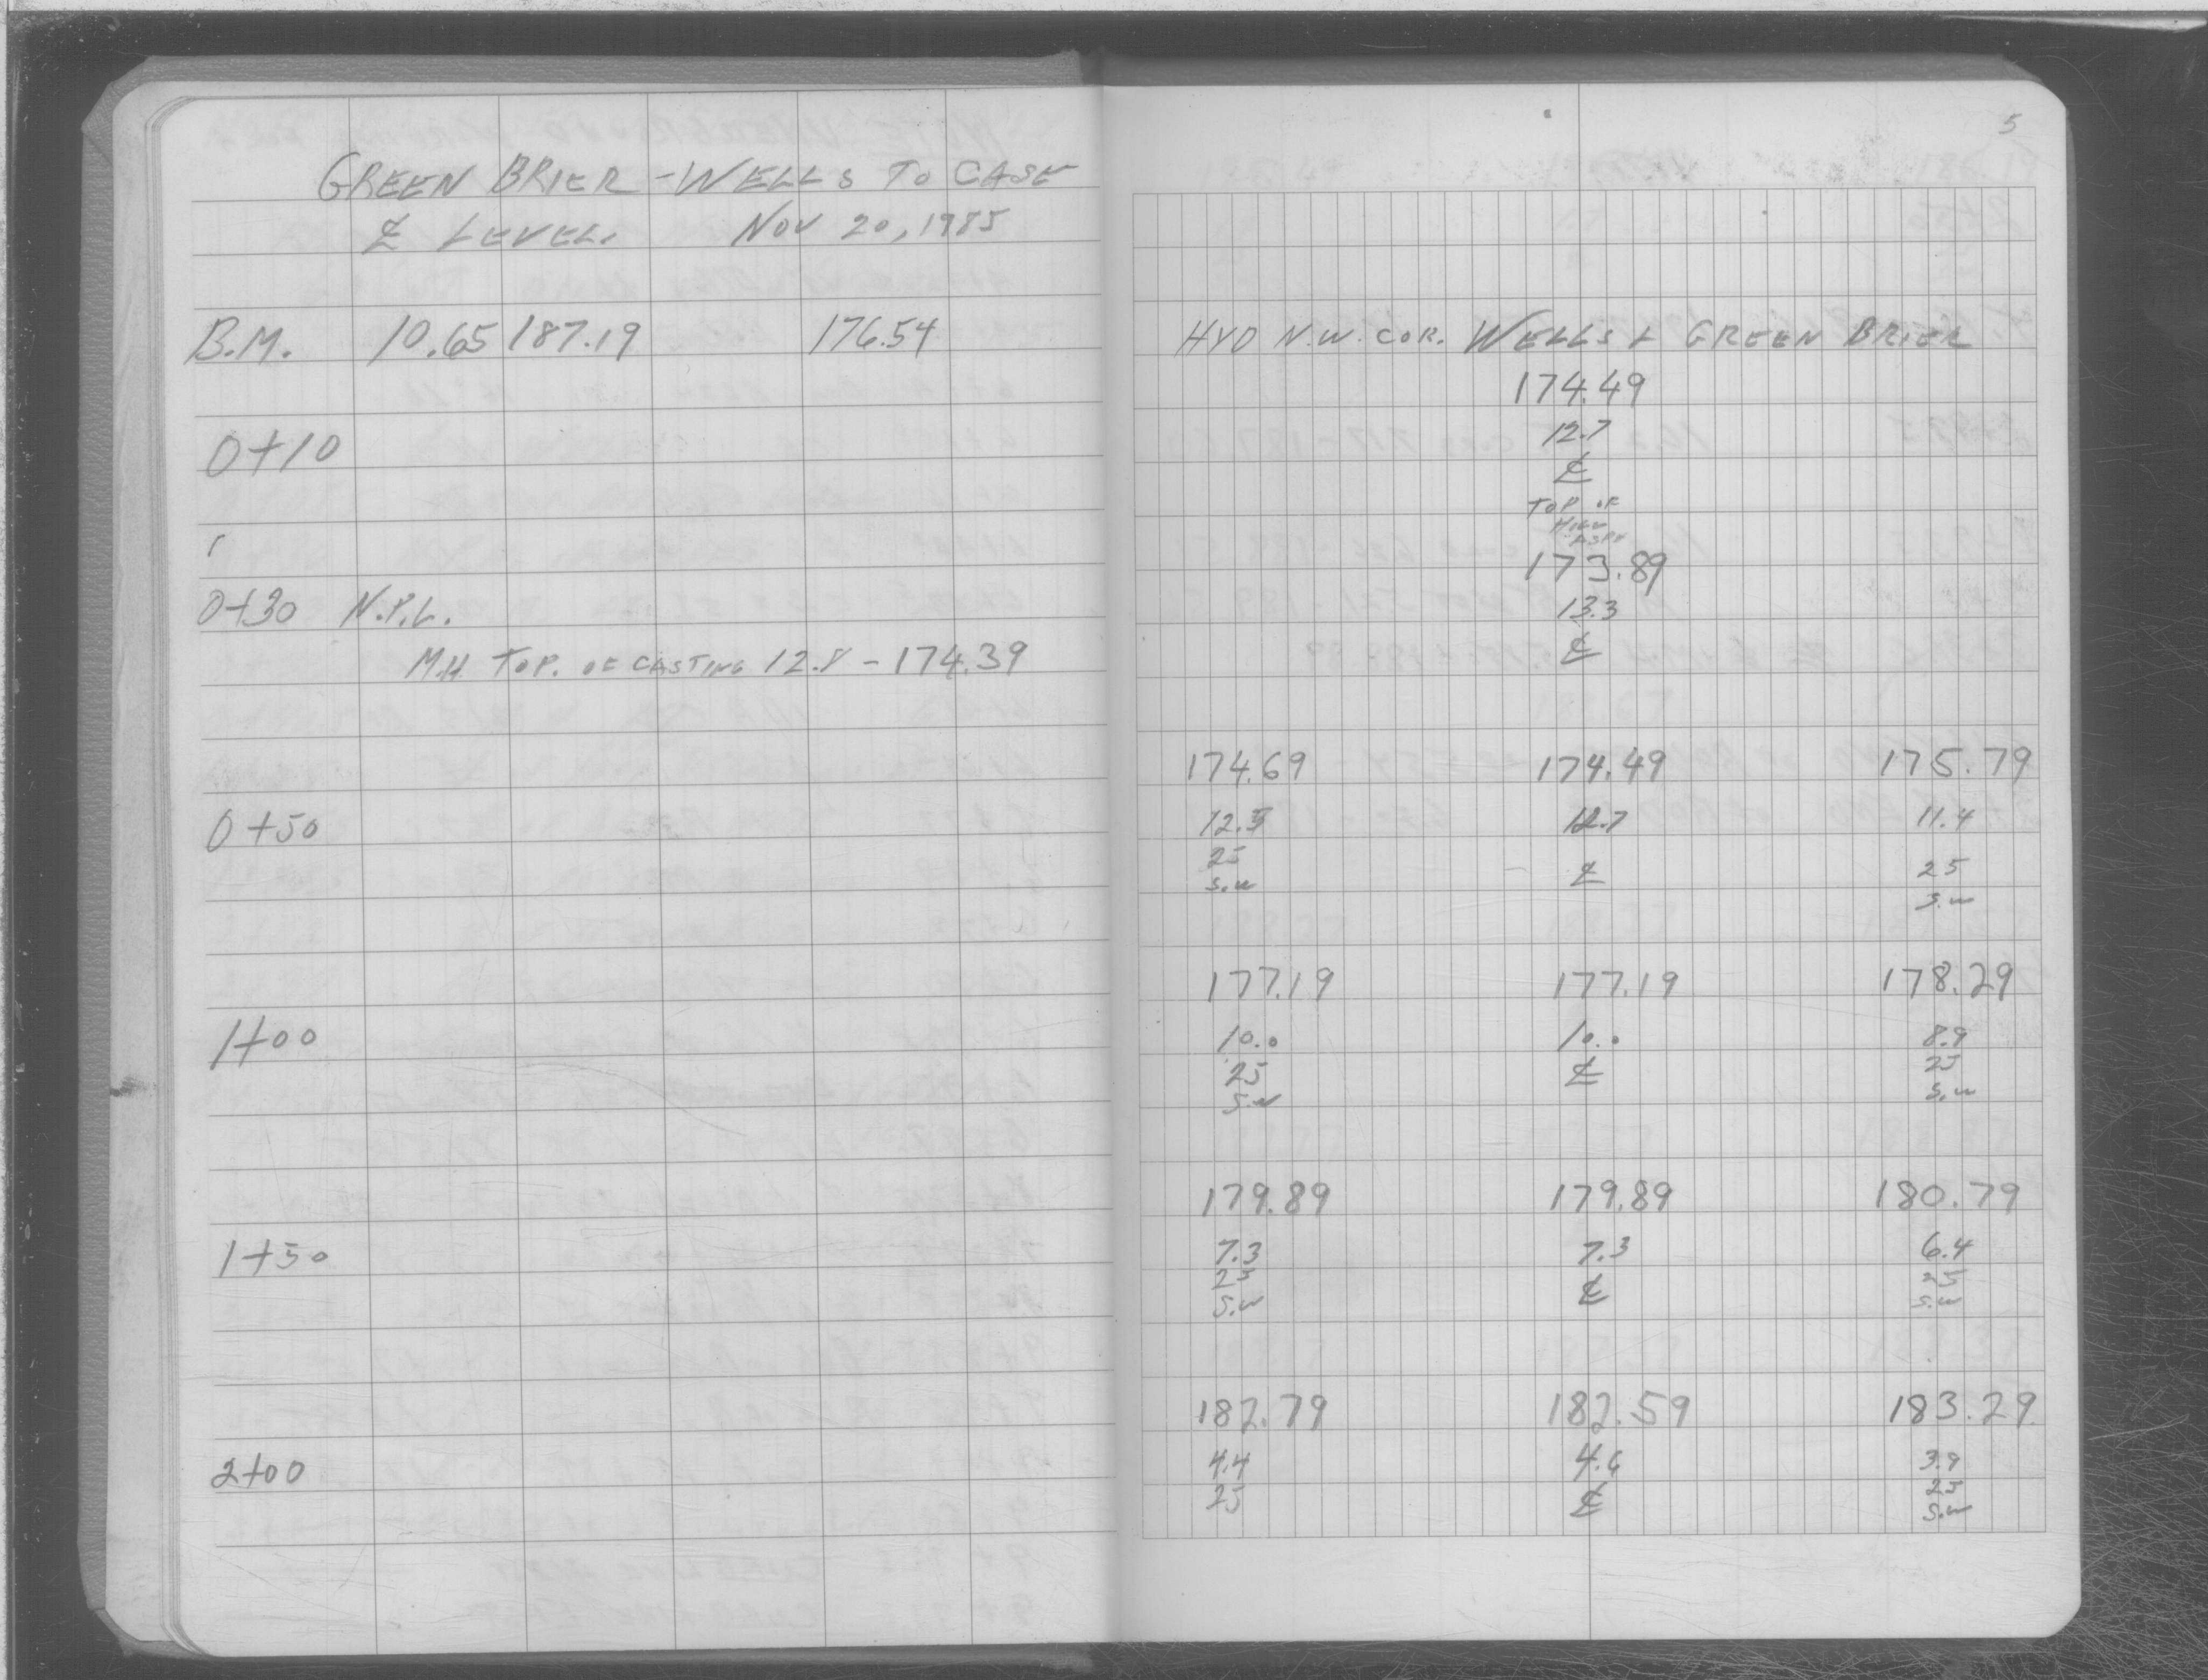 GREEN BRIER - WELLS TO CASE
℄ LEVEL. NOV 20, 1985
B.M. 10.65 187.19 176.54
0+10
0+30 N.P.L.
M.H. TOP. OF CASTING 12.8 - 174.39
0+50
1+00
1+50
2+00
5
HYD N.W. COR. WELLS & GREEN BRIER
174.49
12.7
℄
TOP OF
173.89
13.3
℄
174.69 174.49 175.79
12.5 12.7 11.4
25 ℄ 25
S.W S.W
177.19 177.19 178.29
10.0 10.0 8.9
25 ℄ 25
S.W S.W
179.89 179.89 180.79
7.3 7.3 6.4
25 ℄ 25
S.W S.W
182.79 182.59 183.29
4.4 4.6 3.9
25 ℄ 25
S.W